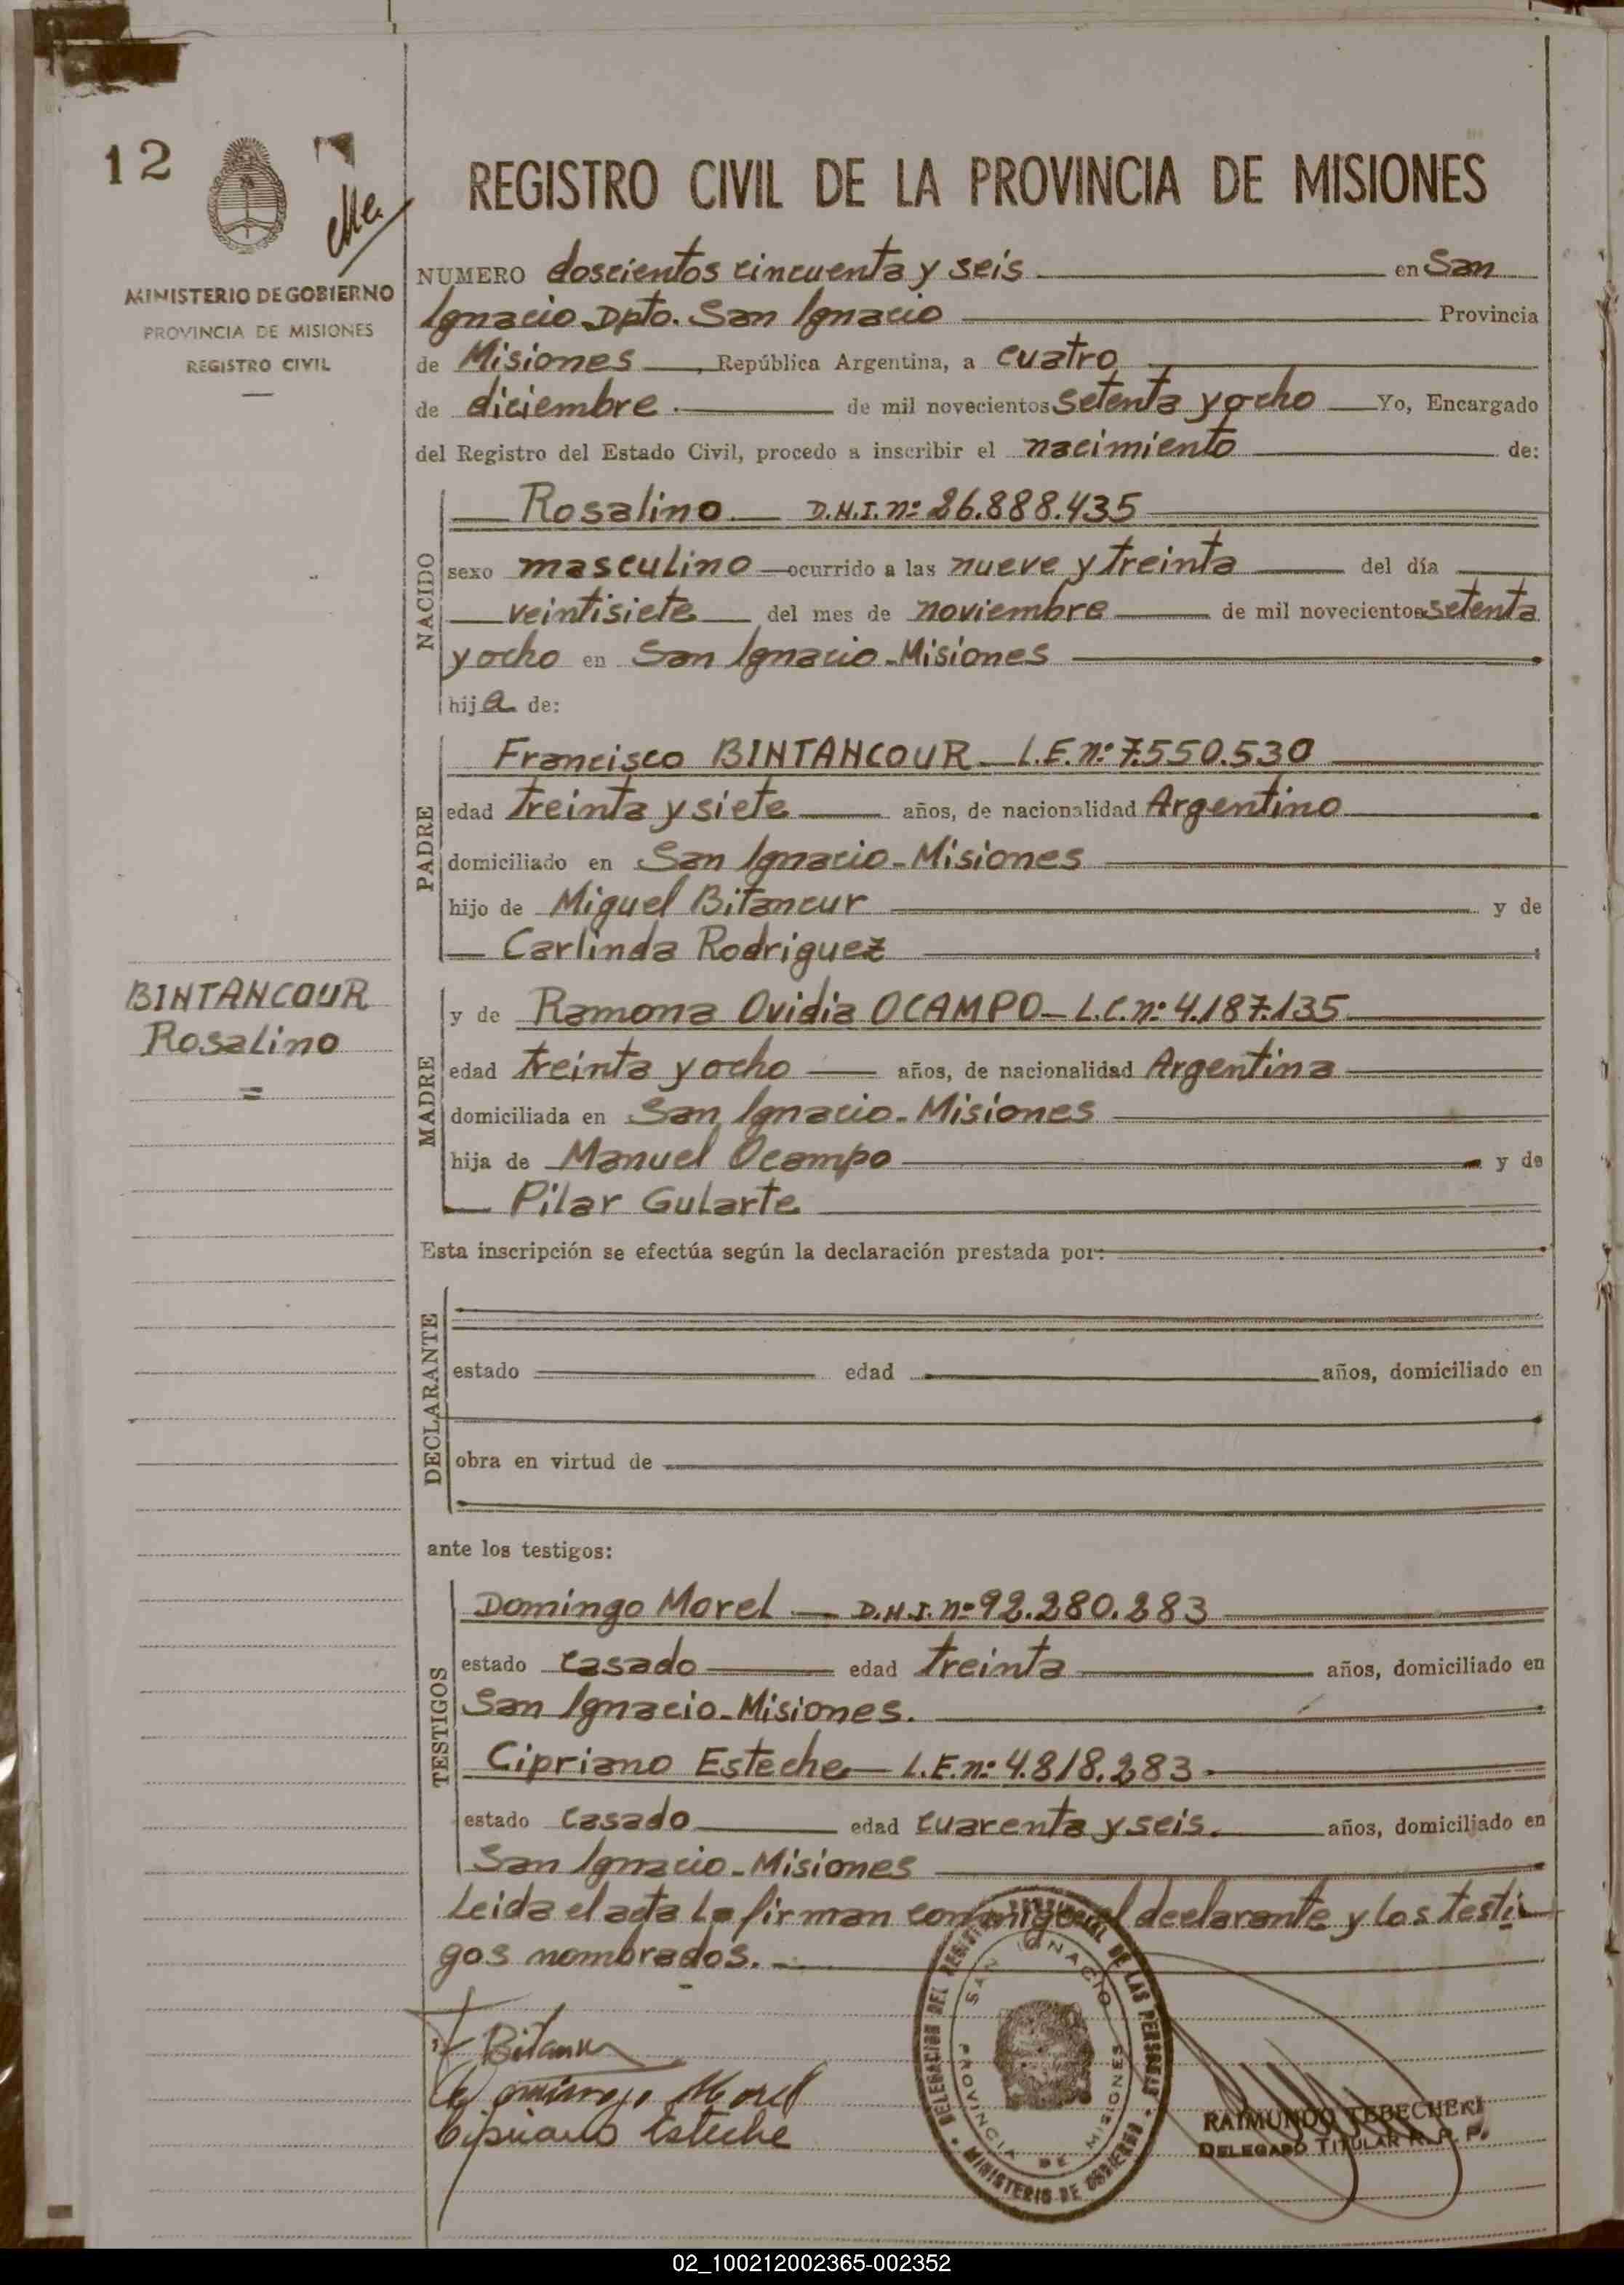 12
MINISTERIO DE GOBIERNO
PROVINCIA DE MISIONES
REGISTRO CIVIL
REGISTRO CIVIL DE LA PROVINCIA DE MISIONES
NUMERO doscientos cincuenta y seis en San
Ignacio Dpto. San Ignacio Provincia
de Misiones, República Argentina, a cuatro
de diciembre. de mil novecientos setenta y ocho Yo, Encargado
del Registro del Estado Civil, procedo a inscribir el nacimiento de:
NACIDO
Rosalino D.N.I. nº 26.888.435
sexo masculino ocurrido a las nueve y treinta del día
veintisiete del mes de noviembre de mil novecientos setenta
y ocho en San Ignacio-Misiones
hija de:
PADRE
Francisco BINTANCOUR L.E. nº 7.550.530
edad treinta y siete años, de nacionalidad Argentino
domiciliado en San Ignacio-Misiones
hijo de Miguel Bitancur y de
Carlinda Rodriguez
BINTANCOUR
Rosalino
MADRE
y de Ramona Ovidia OCAMPO - L.C. nº 4.187.135
edad treinta y ocho años, de nacionalidad Argentina
domiciliada en San Ignacio-Misiones
hija de Manuel Ocampo y de
Pilar Gularte
Esta inscripción se efectúa según la declaración prestada por:
DECLARANTE
estado edad años, domiciliado en
obra en virtud de
ante los testigos:
TESTIGOS
Domingo Morel D.N.I. nº 92.280.283
estado casado edad treinta años, domiciliado en
San Ignacio-Misiones.
Cipriano Esteche L.E. nº 4.818.283
estado casado edad cuarenta y seis. años, domiciliado en
San Ignacio-Misiones
Leida el acta la firman conmigo el declarante y los testi
gos nombrados.
Domingo Morel
Cipriano Esteche
DELEGACION DEL REGISTRO PROVINCIAL DE LAS PERSONAS
SAN IGNACIO
PROVINCIA DE MISIONES
MINISTERIO DE GOBIERNO
RAIMUNDO TEBECHERI
DELEGADO TITULAR R. P. P.
02_100212002365-002352